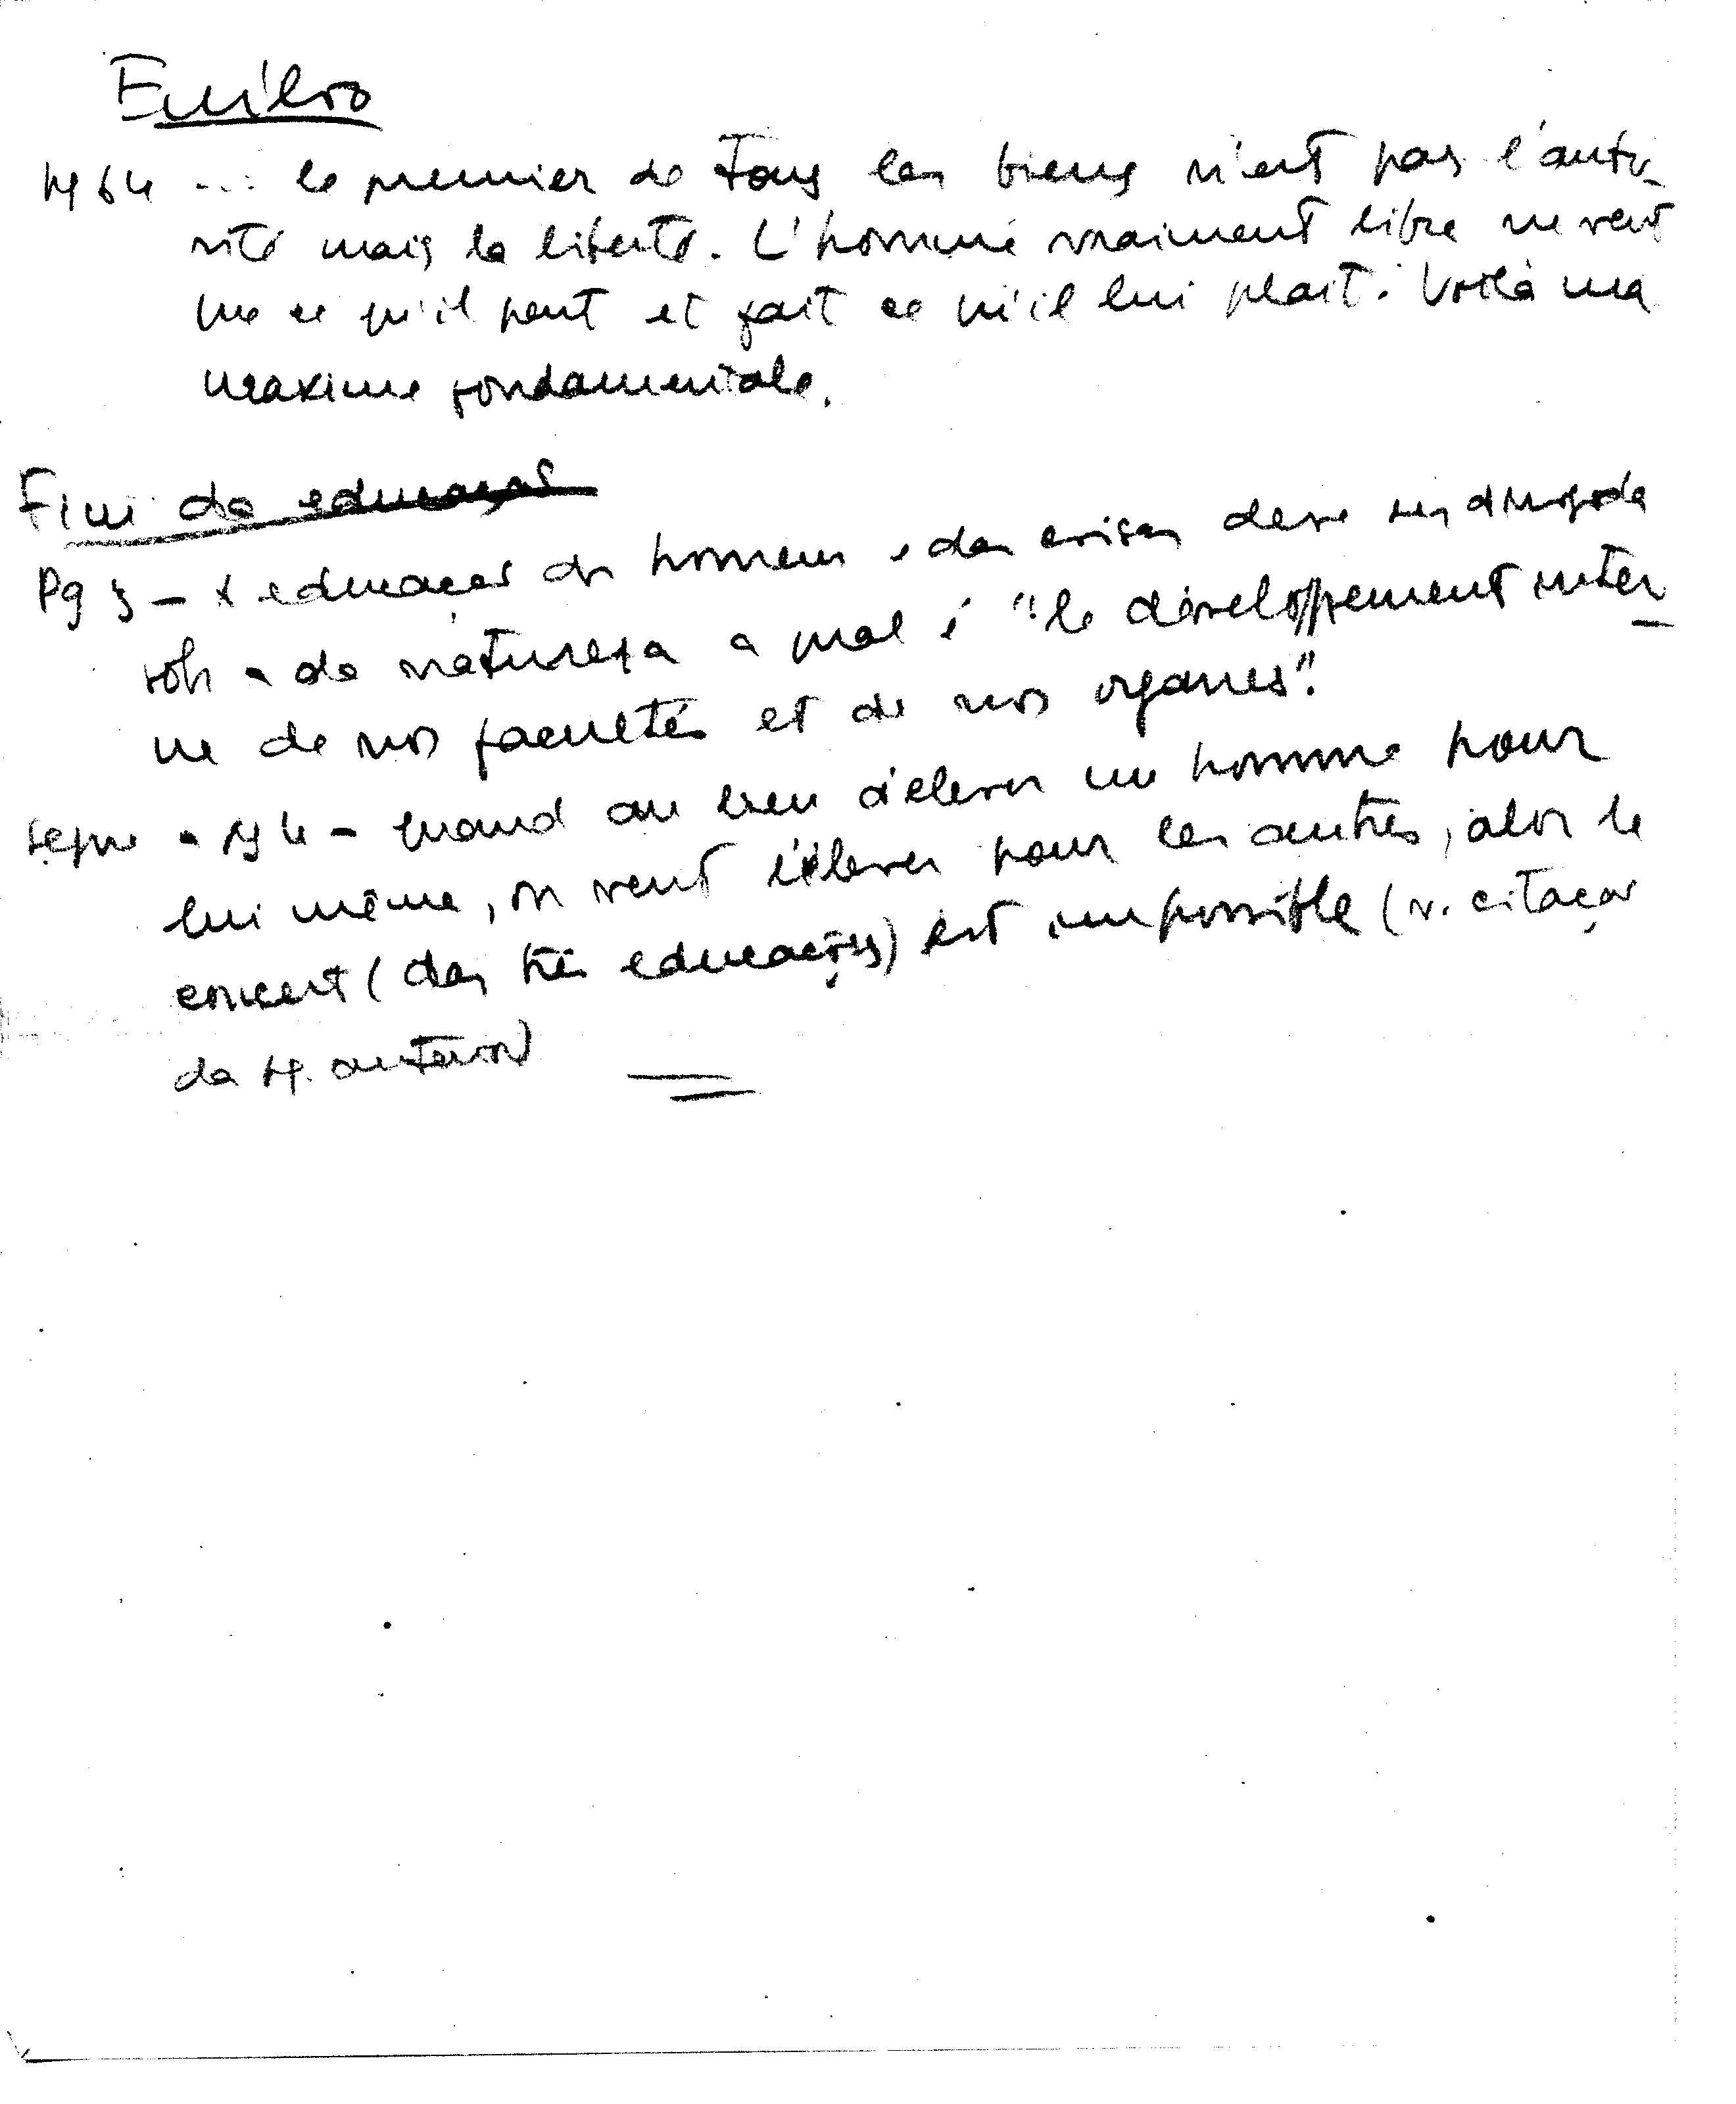 Emílio
pg 64 ... le premier de tous les biens n'est pas l'auto-
rité mais la liberté. L'homme vraiment libre ne veut
que ce qu'il peut et fait ce qu'il lui plait. Voilà ma
maxime fondamentale.
Fim da educaçao
Pg 3 – A educaçao do homem e das coisas deve ser dirigida
sob a da natureza a qual é "le développement inter
ne de nos facultés et de nos organes".
segue a pg 4 – quand au lieu d'elever un homme pour
lui même, on veut l'élever pour les autres, alors le
concert (das três educações) est impossible (v. citaçao
da pg. anterior)